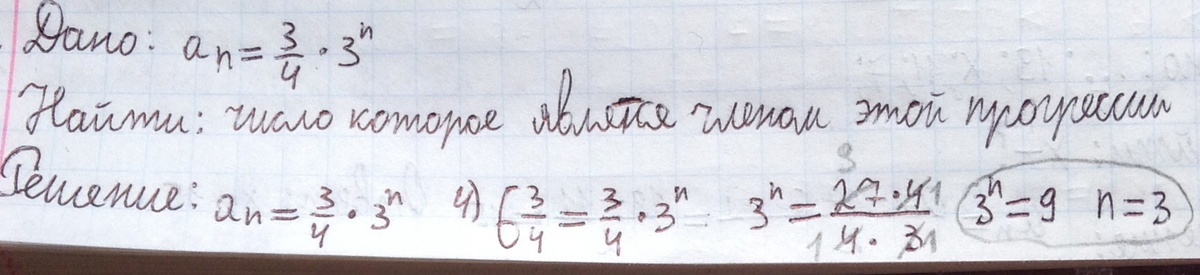 Дано: aₙ = 3/4 · 3ⁿ
Найти: число которое является членом этой прогрессии
Решение: aₙ = 3/4 · 3ⁿ 4) 6 3/4 = 3/4 · 3ⁿ 3ⁿ = 27·4/4·3 9 1 1 1 3ⁿ = 9 n = 3